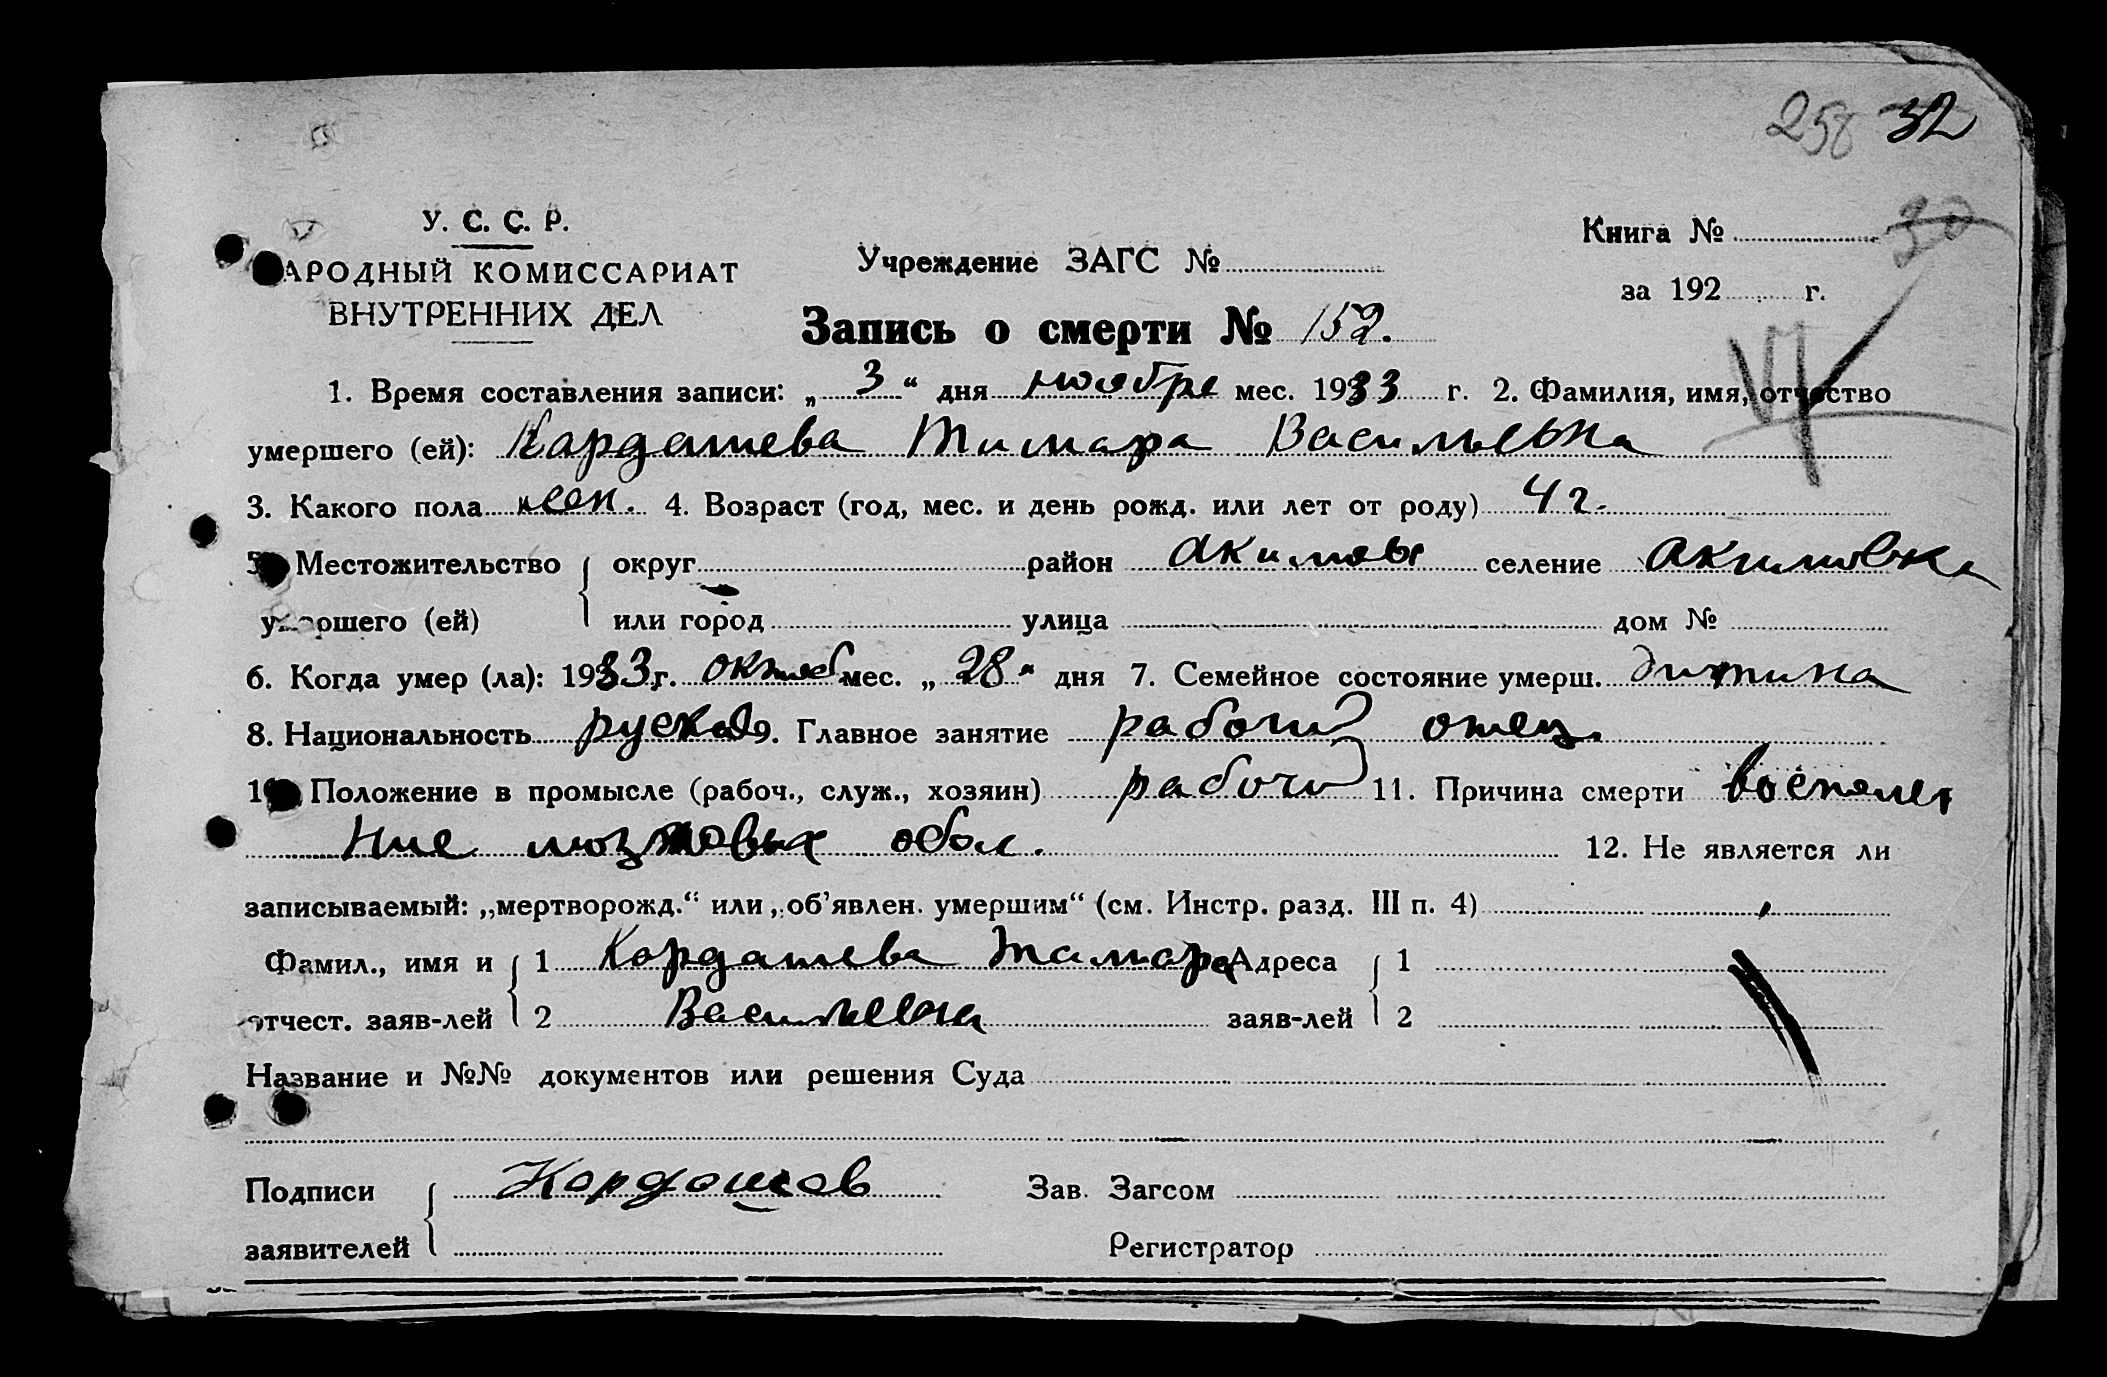 258 32
30
У. С. С. Р.
АРОДНЫЙ КОМИССАРИАТ
ВНУТРЕННИХ ДЕЛ
Учреждение ЗАГС №
Книга №
за 192 г.
Запись о смерти № 152.
1. Время составления записи: „ 3 “ дня ноября мес. 1933 г. 2. Фамилия, имя, отчество
умершего (ей): Кардашева Тимара Васильевна
3. Какого пола жен. 4. Возраст (год, мес. и день рожд. или лет от роду) 4 г.
5. Местожительство округ район Акимовк селение Акимовка
умершего (ей) или город улица дом №
6. Когда умер (ла): 1933 г. октяб мес. „ 28 “ дня 7. Семейное состояние умерш. дитина
8. Национальность руская 9. Главное занятие рабочий отец.
10 Положение в промысле (рабоч., служ., хозяин) рабочий 11. Причина смерти воспале
ние мозговых обол. 12. Не является ли
записываемый: „мертворожд.“ или „об'явлен. умершим“ (см. Инстр. разд. III п. 4)
Фамил., имя и 1 Кордашева Тамара Адреса 1
отчест. заяв-лей 2 Васильевна заяв-лей 2
Название и №№ документов или решения Суда
Подписи Кордашов Зав. Загсом
заявителей Регистратор